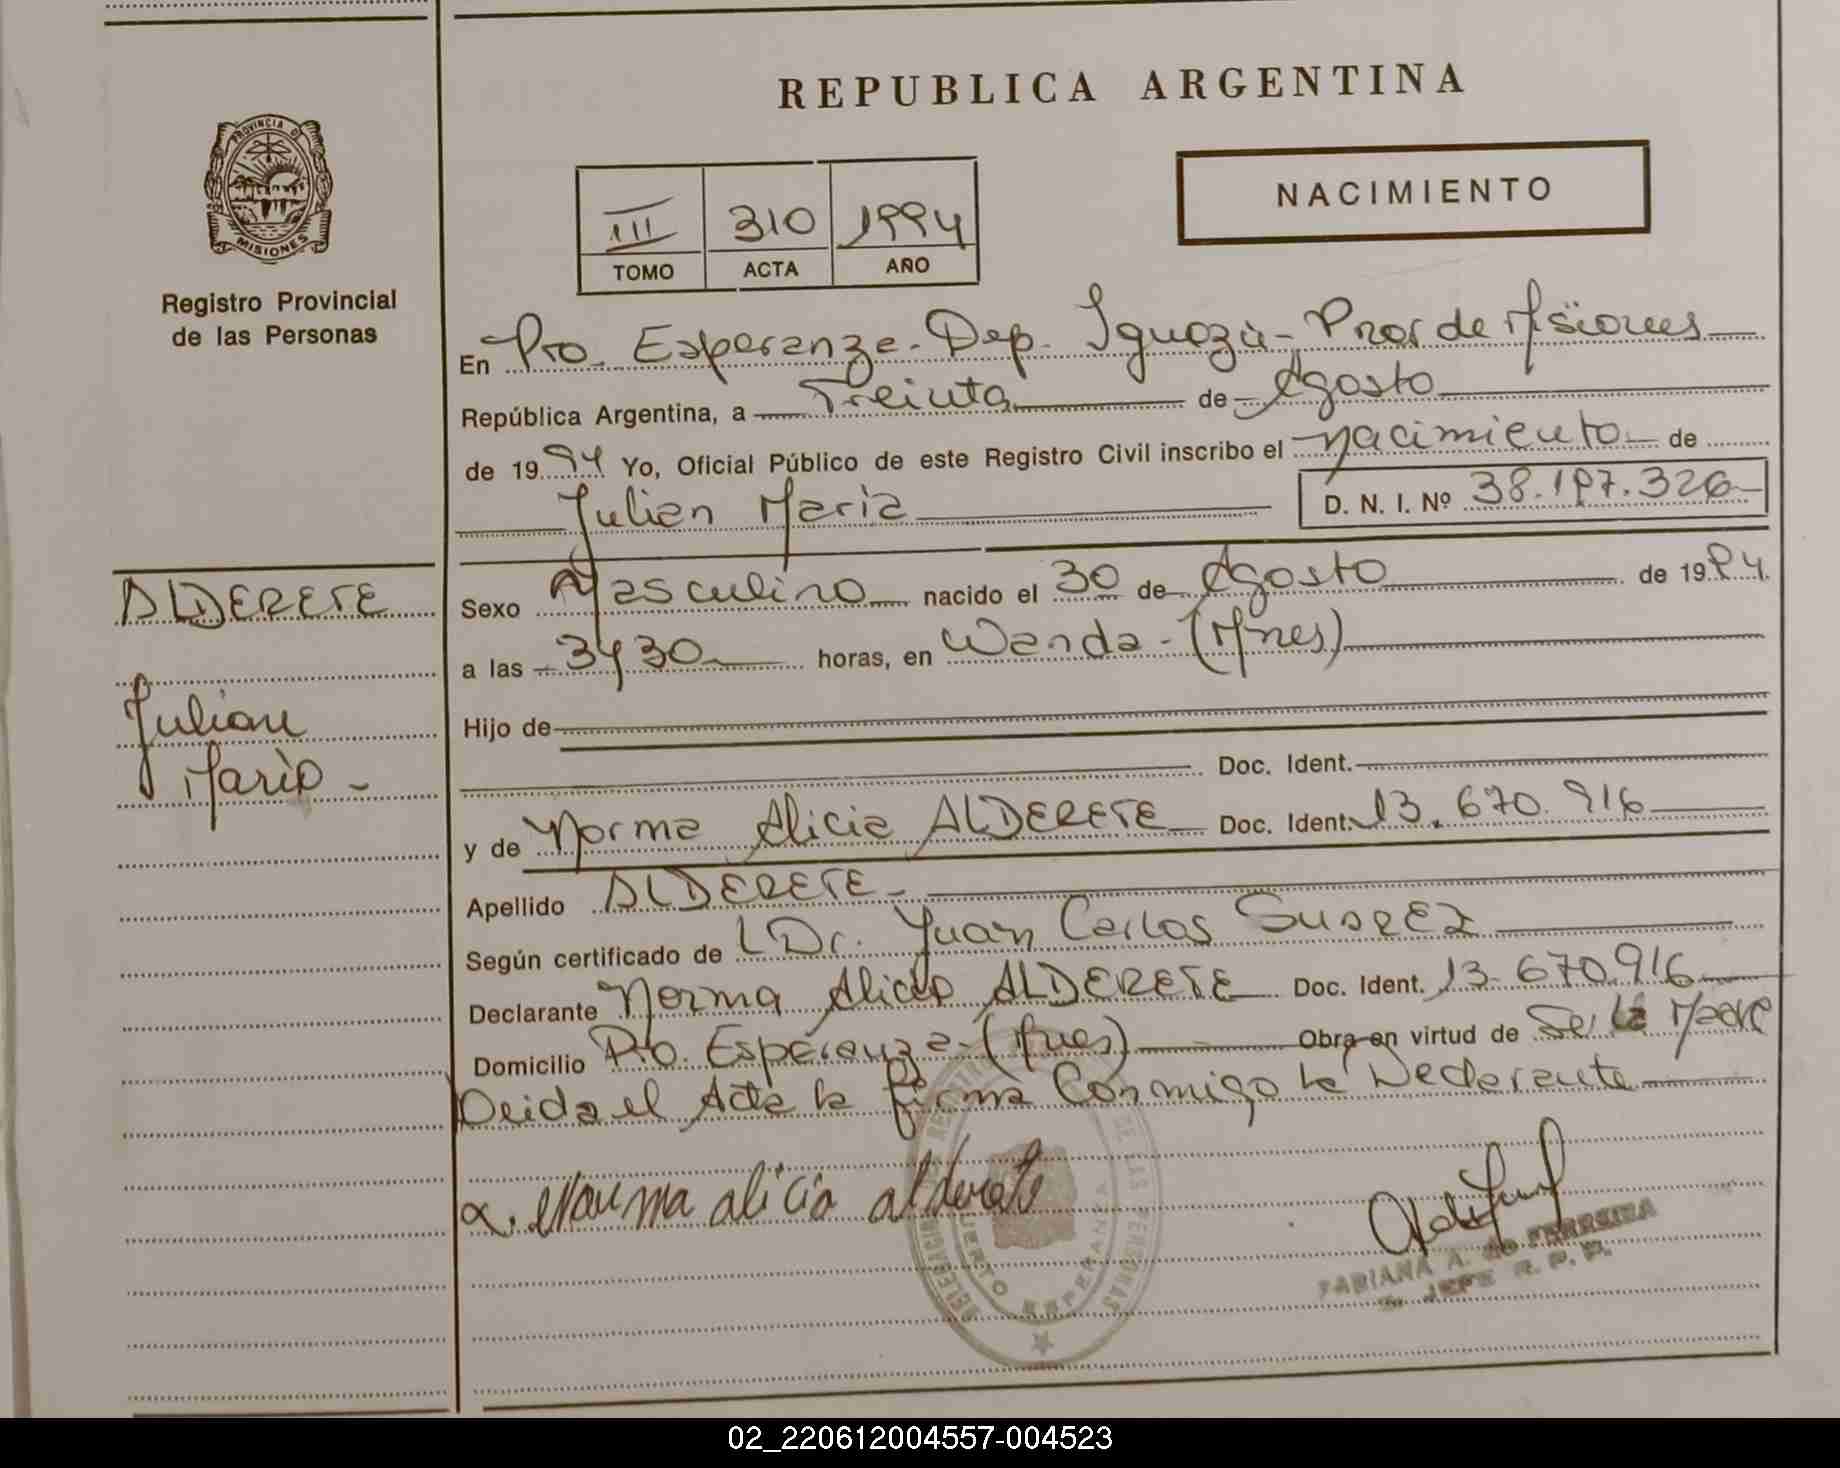 REPUBLICA ARGENTINA
NACIMIENTO
III 310 1994
TOMO ACTA AÑO
PROVINCIA DE
MISIONES
Registro Provincial
de las Personas
En Pto. Esperanza - Dep. Iguazú - Prov de Misiones
República Argentina, a Treinta de Agosto
de 1994 Yo, Oficial Público de este Registro Civil inscribo el nacimiento de
Julian Maria
D. N. I. Nº 38.197.326
ALDERETE
Julian
Mario -
Sexo Masculino nacido el 30 de Agosto de 1994.
a las 3y30 horas, en Wanda - (Mnes)
Hijo de
Doc. Ident.
y de Norma Alicia ALDERETE Doc. Ident. 13.670.916
Apellido ALDERETE -
Según certificado de Dr. Juan Carlos SUAREZ
Declarante Norma Alicia ALDERETE Doc. Ident. 13.670.916
Domicilio Pto. Esperanza - (Mnes) Obra en virtud de Ser la Madre
Leida el Acta la firma Conmigo la Declarante
Norma alicia alderete
DELEGACION REGISTRO DE LAS PERSONAS
PUERTO ESPERANZA
FABIANA A. de FERREIRA
JEFE R. P. P.
02_220612004557-004523